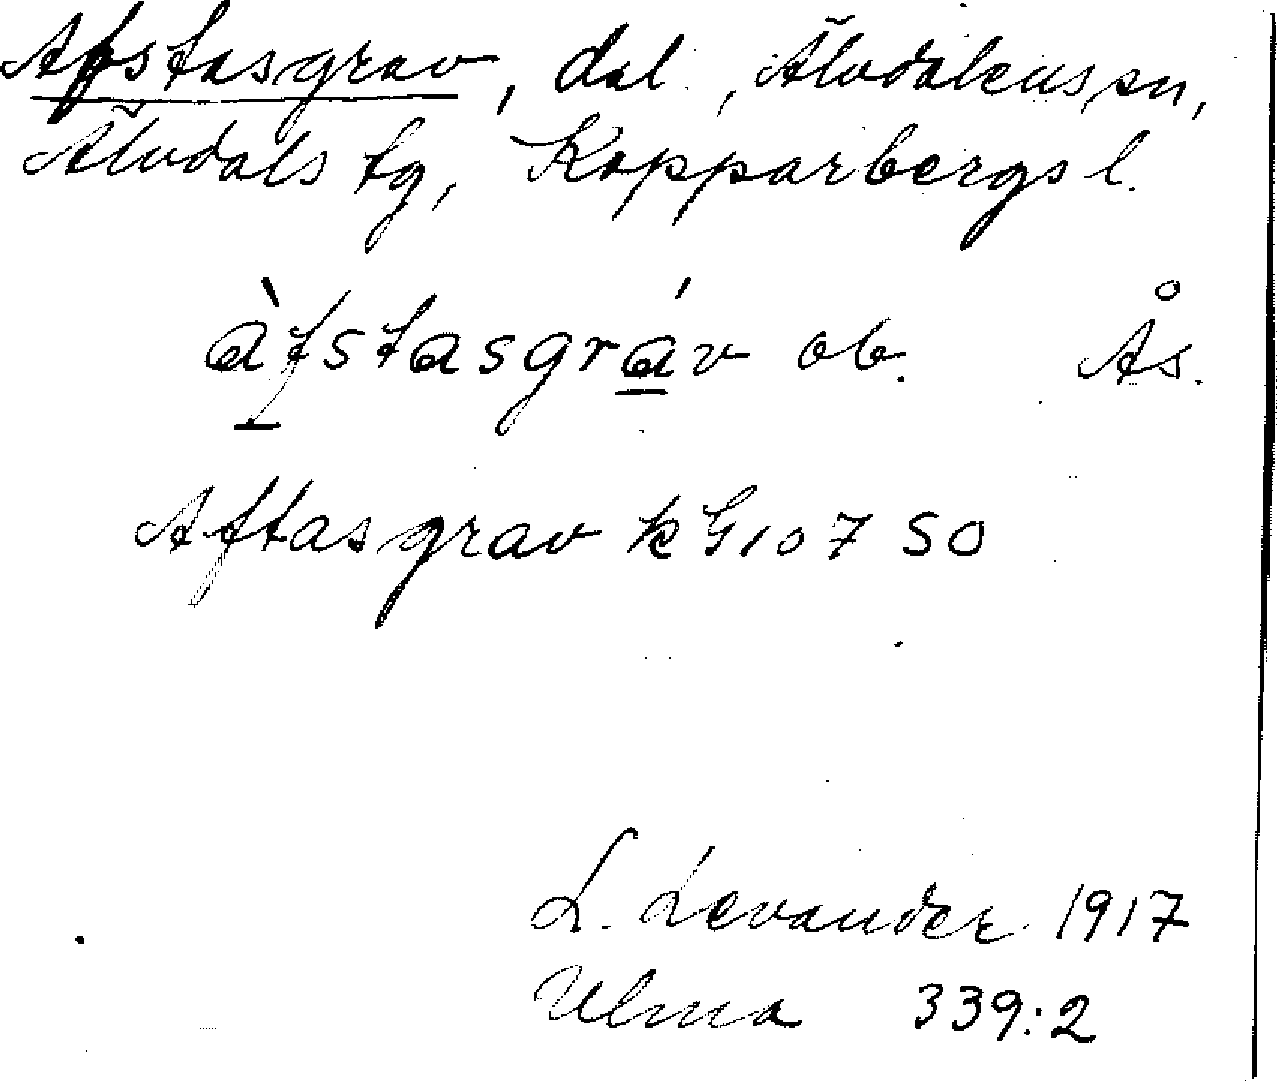 Afstasgrav, dal, Älvdalens sn,
Älvdals tg, Kopparbergs l.
àfstasgráv ob. Ås.
Aftasgrav k G10 7 50
L. Levander 1917
Ulma 339:2